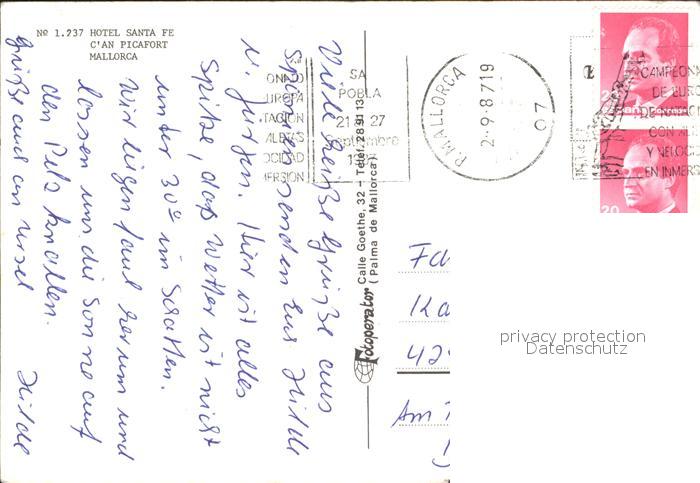 Nº 1.237 HOTEL SANTA FE
C'AN PICAFORT
MALLORCA
Viele Grüße aus
Spanien senden Euch Hilde
u. Jürgen. Hier ist alles
Spitze, das Wetter ist nicht
unter 30° im Schatten.
Wir liegen faul herum und
lassen uns die Sonne auf
den Pelz knallen.
Grüße auch an Ursel
Hilde
Fotoperator
Calle Goethe, 32 - Teléf. 28 91 13
(Palma de Mallorca)
ONATO
EUROPA
TACION
ALETAS
OCIDAD
MERSION
SA
POBLA
21 27
1987
P.MALLORCA
2-9.8719
07
CAMPEONA
DE EURO
DE NATACI
CON ALE
Y VELOCI
EN INMERS
20
Fa
Ka
42
Am
privacy protection
Datenschutz